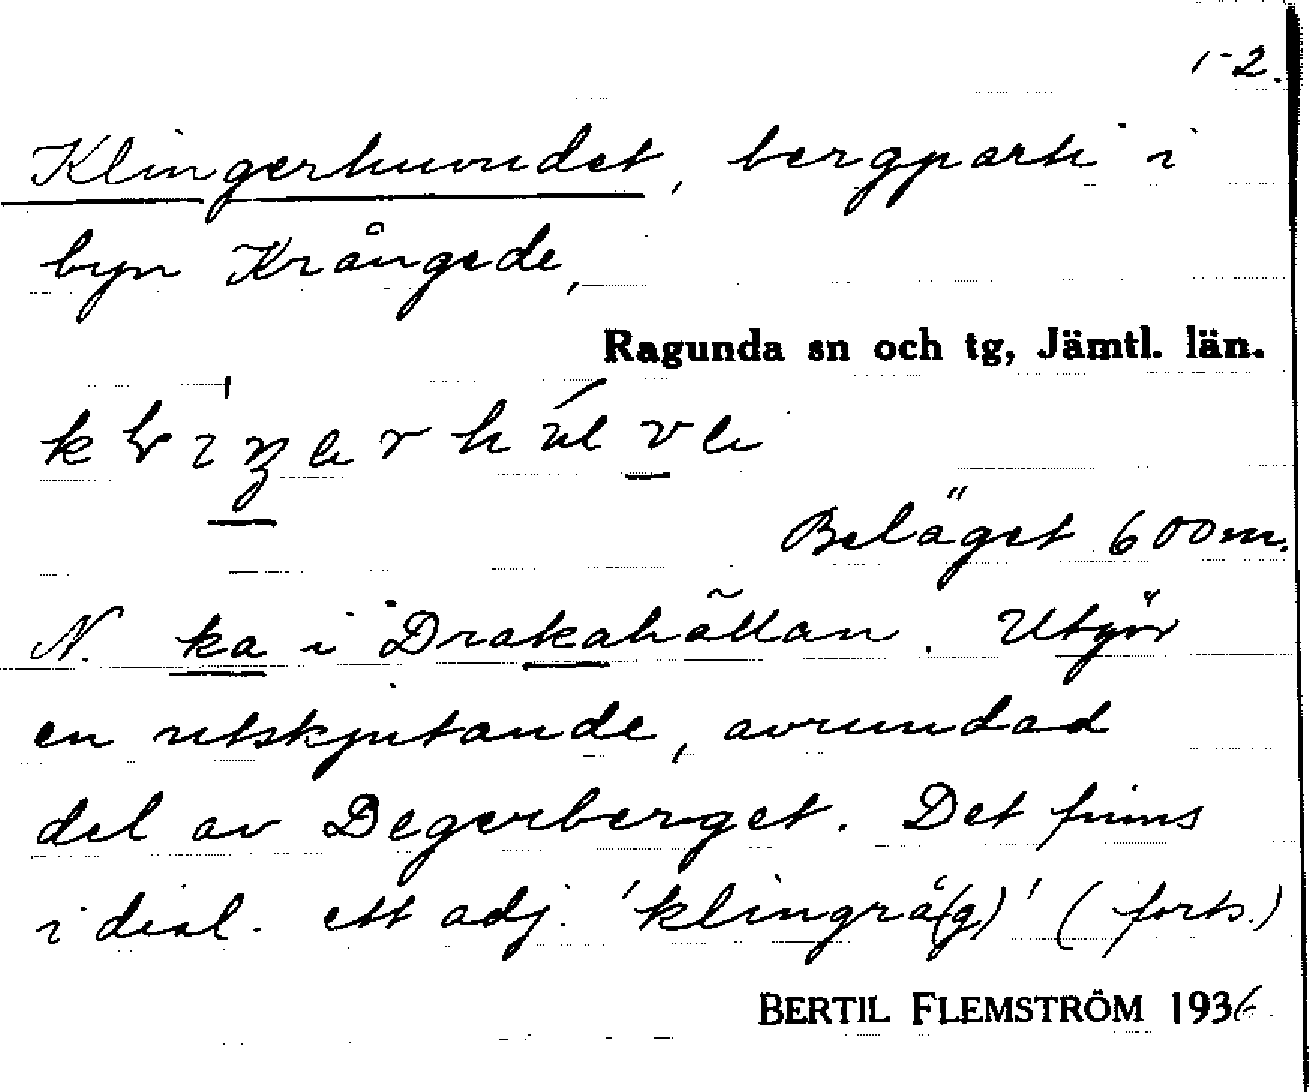 1-2.
Klingerhuvudet, bergparti i
byn Krångede,
Ragunda sn och tg, Jämtl. län.
Beläget 600m.
N. ka i Drakahällan. Utgör
en utskjutande, avrundad
del av Degerberget. Det finns
i dial. ett adj. 'klingrå(g)' (forts.)
BERTIL FLEMSTRÖM 1936